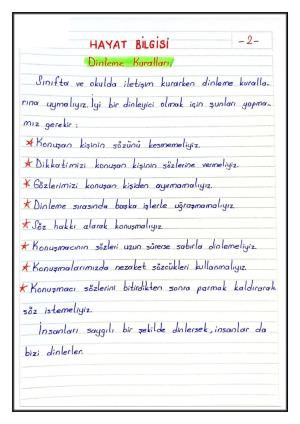 HAYAT BİLGİSİ
-2-
Dinleme Kuralları
Sınıfta ve okulda iletişim kurarken dinleme kuralla-
rına uymalıyız. İyi bir dinleyici olmak için şunları yapma-
mız gerekir:
* Konuşan kişinin sözünü kesmemeliyiz.
* Dikkatimizi konuşan kişinin sözlerine vermeliyiz.
* Gözlerimizi konuşan kişiden ayırmamalıyız.
* Dinleme sırasında başka işlerle uğraşmamalıyız.
* Söz hakkı alarak konuşmalıyız.
* Konuşmacının sözleri uzun sürerse sabırla dinlemeliyiz.
* Konuşmalarımızda nezaket sözcükleri kullanmalıyız.
* Konuşmacı sözlerini bitirdikten sonra parmak kaldırarak
söz istemeliyiz.
İnsanları saygılı bir şekilde dinlersek, insanlar da
bizi dinlerler.